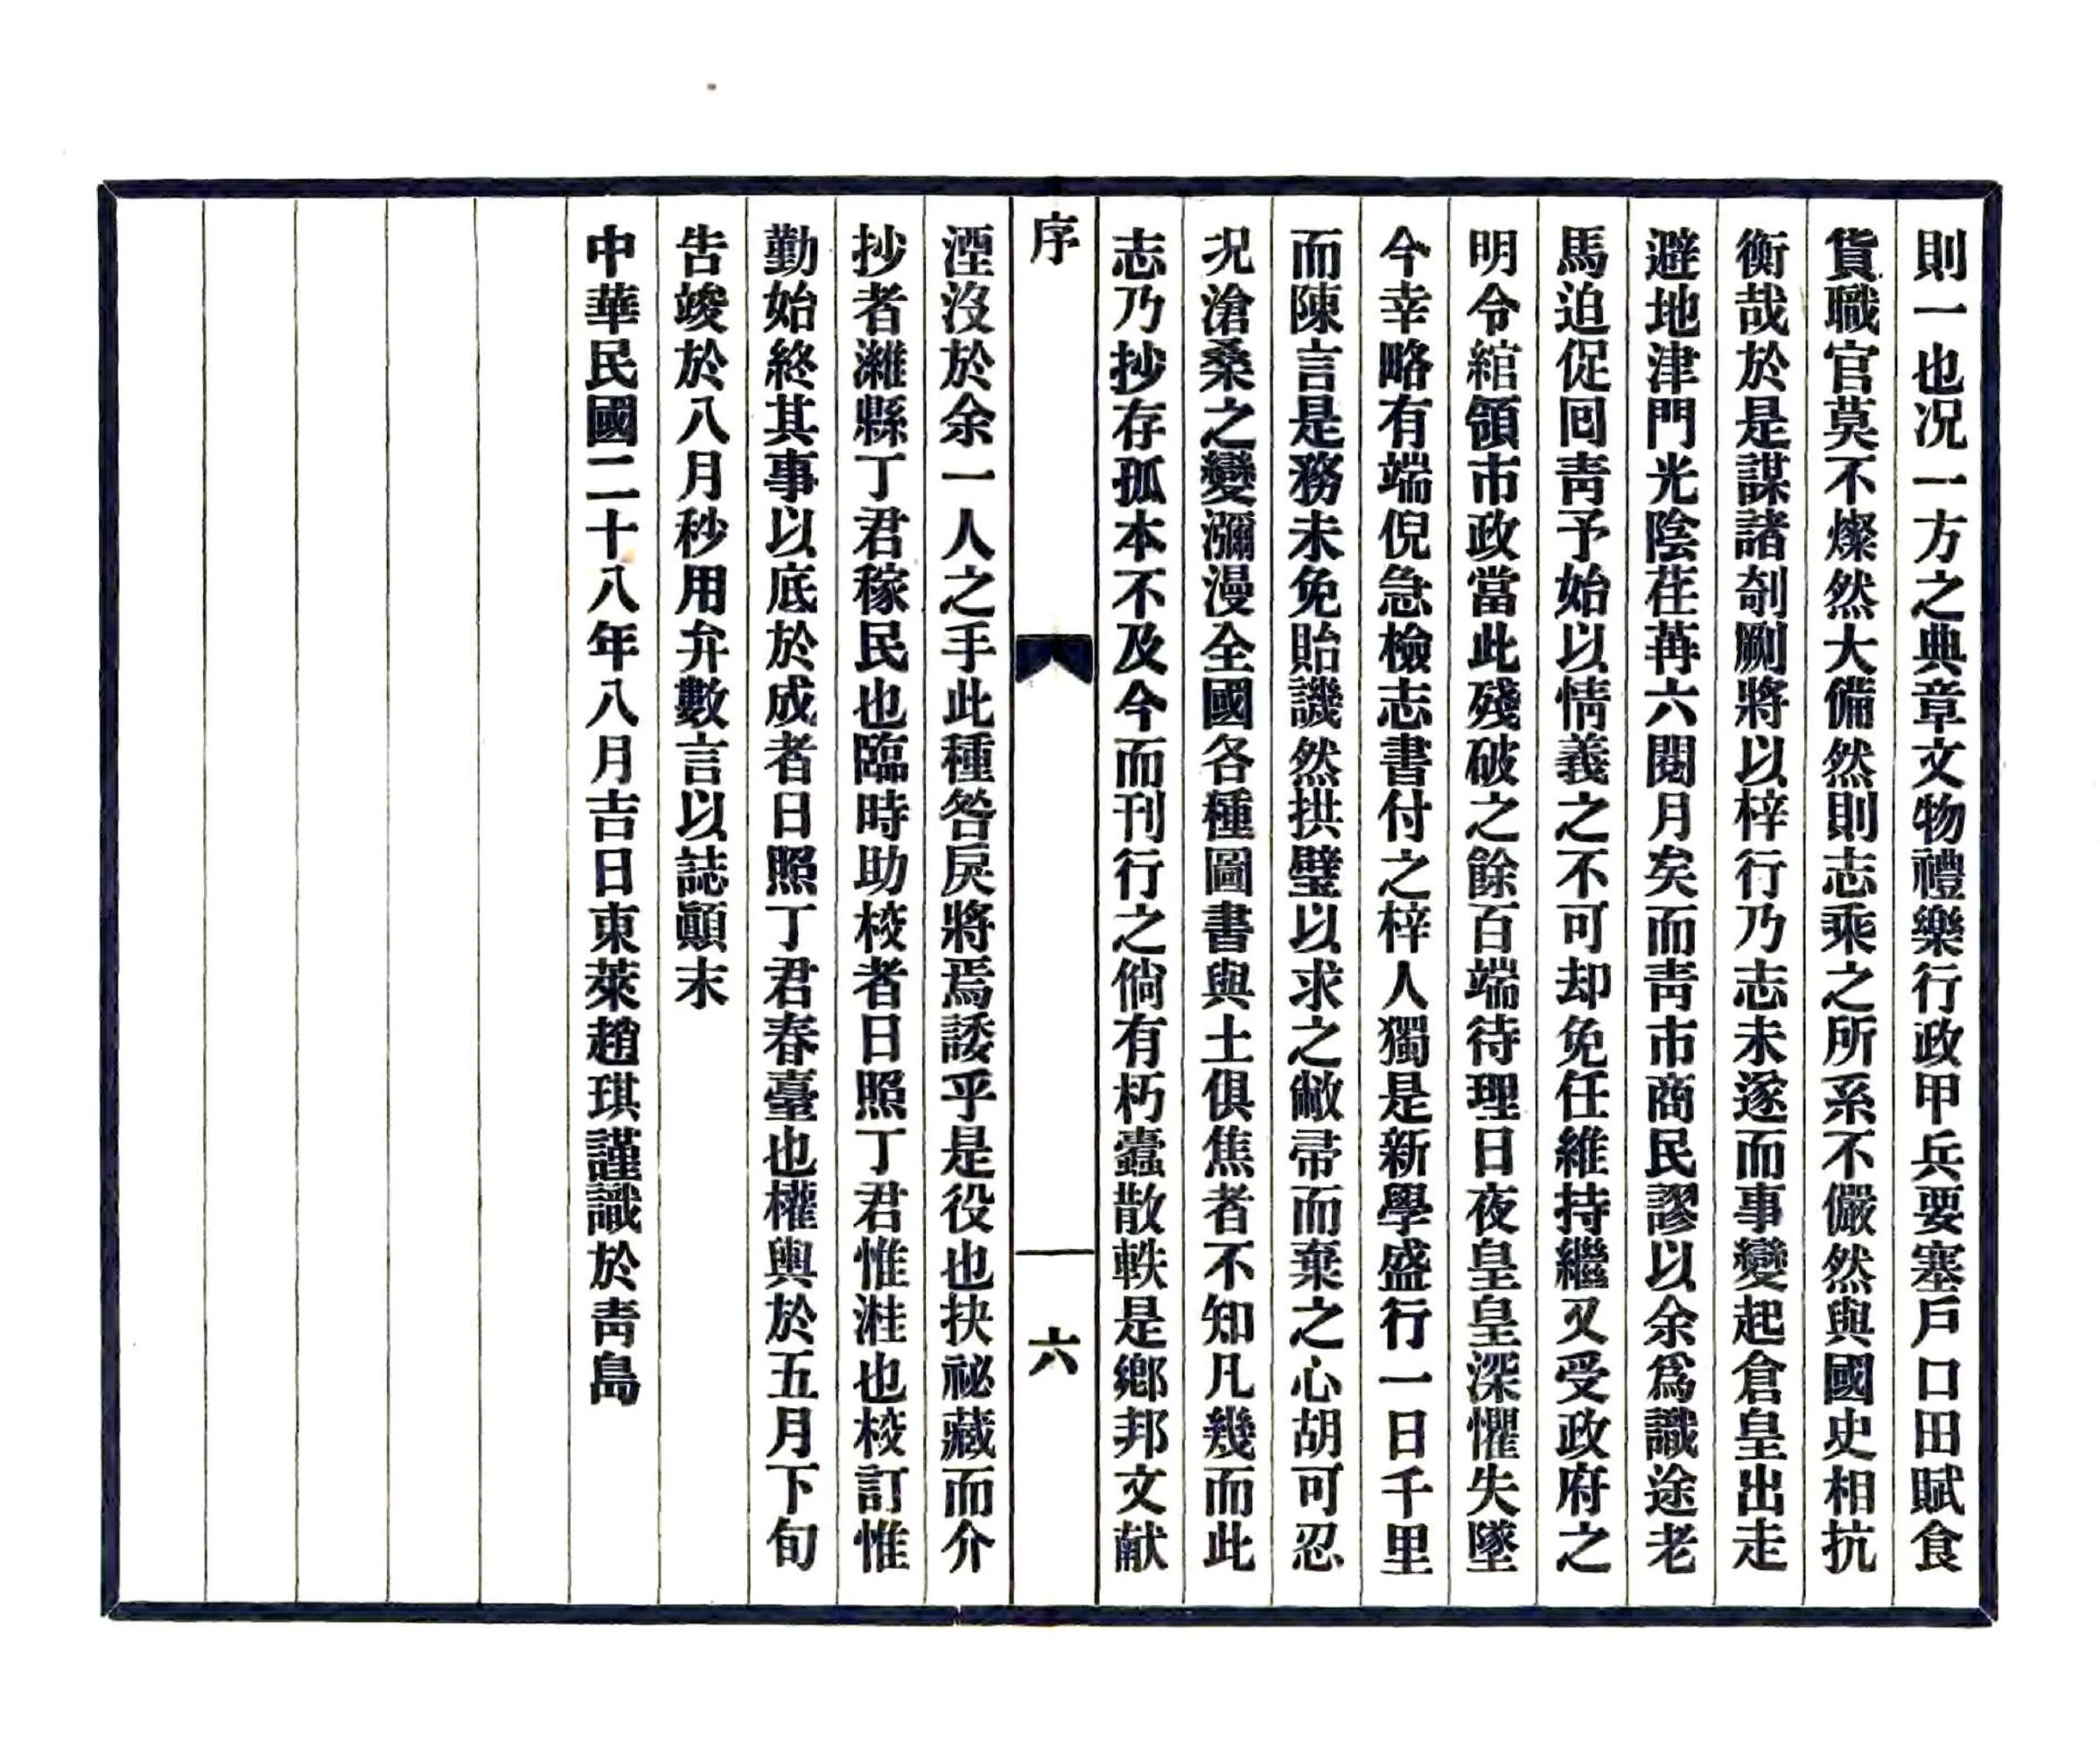 則一也况一方之典章文物禮樂行政甲兵要塞戶口田賦食
貨職官莫不燦然大備然則志乘之所系不儼然與國史相抗
衡哉於是謀諸剞劂將以梓行乃志未遂而事變起倉皇出走
避地津門光陰荏苒六閱月矣而靑市商民謬以余爲識途老
馬迫促回靑予始以情義之不可却免任維持繼又受政府之
明令綰領市政當此殘破之餘百端待理日夜皇皇深懼失墜
今幸略有端倪急檢志書付之梓人獨是新學盛行一日千里
而陳言是務未免貽譏然拱璧以求之敝帚而棄之心胡可忍
况滄桑之變瀰漫全國各種圖書與土俱焦者不知凡幾而此
志乃抄存孤本不及今而刊行之倘有朽蠹散軼是鄉邦文献
序
六
湮沒於余一人之手此種咎戾將焉諉乎是役也抉祕藏而介
抄者濰縣丁君稼民也臨時助校者日照丁君惟溎也校訂惟
勤始終其事以底於成者日照丁君春臺也權輿於五月下旬
告竣於八月秒用弁數言以誌顚末
中華民國二十八年八月吉日東萊趙琪謹識於靑島